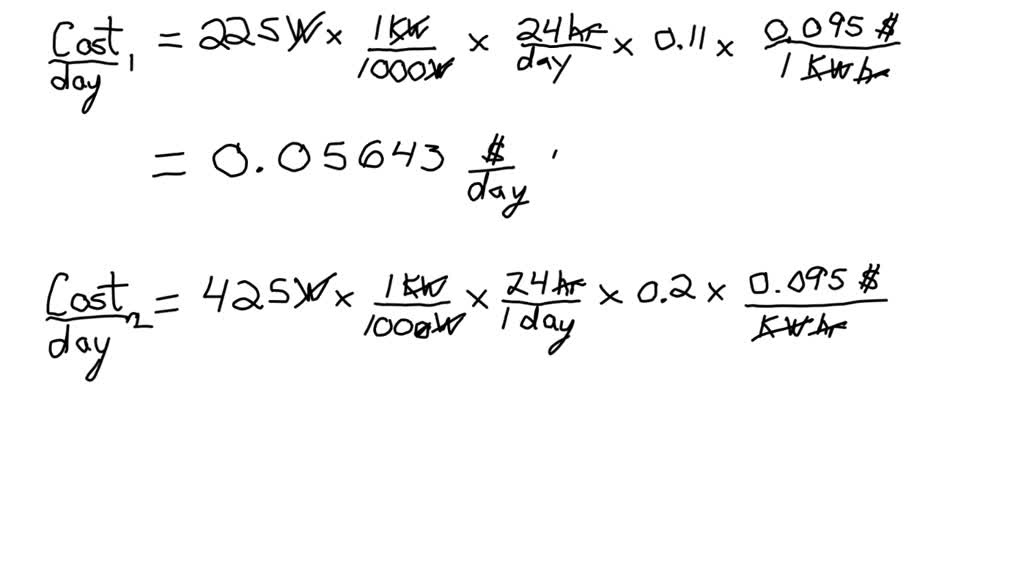 Cost/day 1 = 225 W × 1 KW/1000 W × 24 hr/day × 0.11 × 0.095 $/1 KW hr
= 0.05643 $/day
Cost/day 2 = 425 W × 1 KW/1000 W × 24 hr/1 day × 0.2 × 0.095 $/KW hr